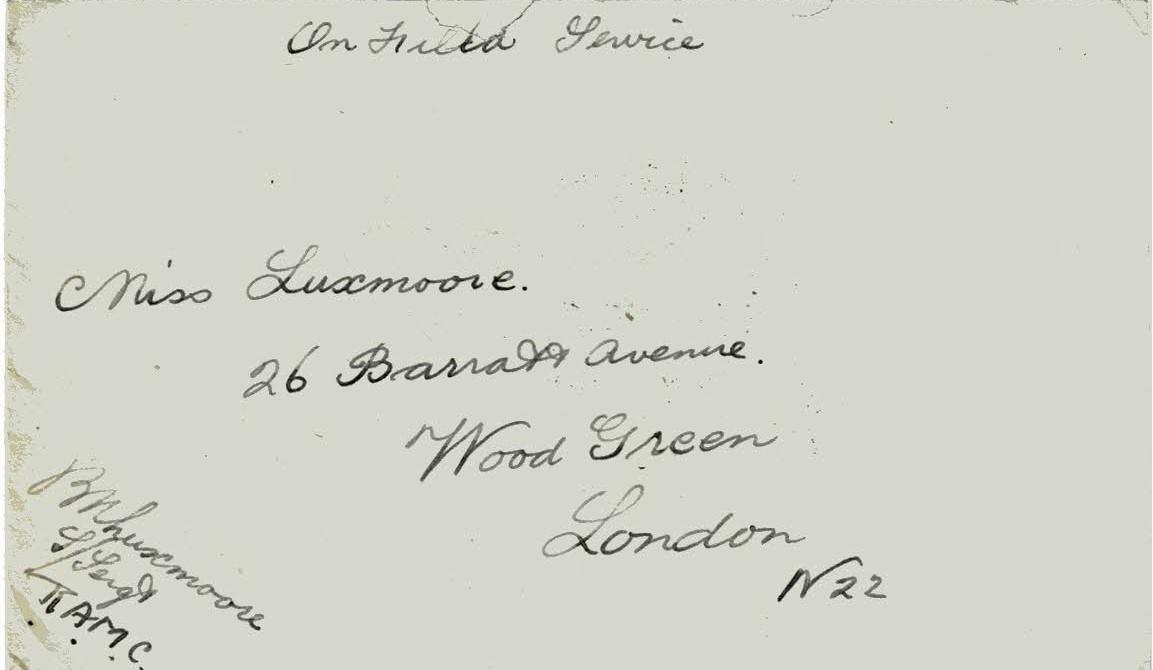 On Field Service
Miss Luxmoore.
26 Barratt Avenue.
Wood Green
London
N22
BM Luxmoore
S/Sergt
R.A.M.C.